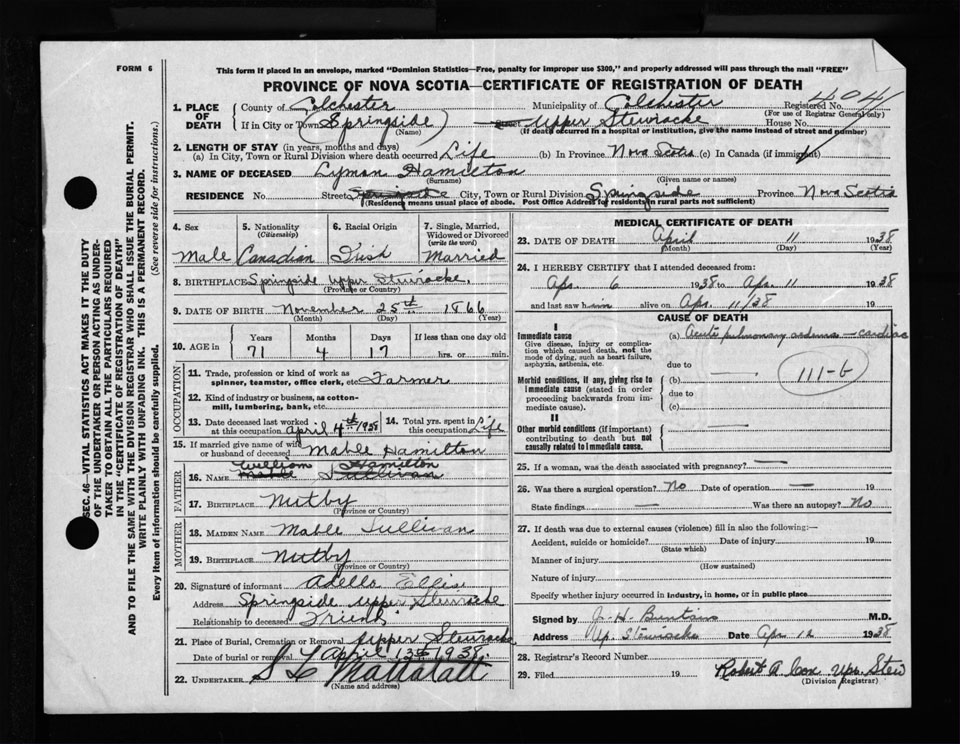 FORM 6
This form if placed in an envelope, marked "Dominion Statistics—Free, penalty for improper use $300," and properly addressed will pass through the mail "FREE"
PROVINCE OF NOVA SCOTIA—CERTIFICATE OF REGISTRATION OF DEATH
404
SEC. 46—VITAL STATISTICS ACT MAKES IT THE DUTY
OF THE UNDERTAKER OR PERSON ACTING AS UNDER-
TAKER TO OBTAIN ALL THE PARTICULARS REQUIRED
IN THE "CERTIFICATE OF REGISTRATION OF DEATH"
AND TO FILE THE SAME WITH THE DIVISION REGISTRAR WHO SHALL ISSUE THE BURIAL PERMIT.
WRITE PLAINLY WITH UNFADING INK. THIS IS A PERMANENT RECORD.
Every item of information should be carefully supplied. (See reverse side for instructions.)
1. PLACE OF DEATH
County of Colchester Municipality of Colchester Registered No.
(For use of Registrar General only)
If in City or Town Springside Street Upper Stewiacke House No.
(Name) (If death occurred in a hospital or institution, give the name instead of street and number)
2. LENGTH OF STAY (in years, months and days)
(a) In City, Town or Rural Division where death occurred Life (b) In Province Nova Scotia (c) In Canada (if immigrant)
3. NAME OF DECEASED Lyman Hamilton
(Surname) (Given name or names)
RESIDENCE No. Street Springside City, Town or Rural Division Springside Province Nova Scotia
(Residence means usual place of abode. Post Office Address for residents in rural parts not sufficient)
4. Sex 5. Nationality (Citizenship) 6. Racial Origin 7. Single, Married, Widowed or Divorced (write the word)
Male Canadian Irish Married
8. BIRTHPLACE Springside Upper Stewiacke.
(Province or Country)
9. DATE OF BIRTH November 25th 1866
(Month) (Day) (Year)
10. AGE in Years Months Days If less than one day old
71 4 17 hrs. or min.
OCCUPATION
11. Trade, profession or kind of work as
spinner, teamster, office clerk, etc. Farmer
12. Kind of industry or business, as cotton-
mill, lumbering, bank, etc.
13. Date deceased last worked
at this occupation April 4th/1938
14. Total yrs. spent in
this occupation Life
15. If married give name of wife
or husband of deceased Mable Hamilton
FATHER
William Hamilton
16. NAME Mable Sullivan
17. BIRTHPLACE Nutby
(Province or Country)
MOTHER
18. MAIDEN NAME Mable Sullivan
19. BIRTHPLACE Nutby
(Province or Country)
20. Signature of informant Adella Ellis
Address Springside Upper Stewiacke
Relationship to deceased Friend
21. Place of Burial, Cremation or Removal Upper Stewiacke
Date of burial or removal April 13th 1938.
22. UNDERTAKER
(Name and address)
MEDICAL CERTIFICATE OF DEATH
23. DATE OF DEATH April 11 1938
(Month) (Day) (Year)
24. I HEREBY CERTIFY that I attended deceased from:
Apr. 6 1938 to Apr. 11 1938
and last saw him alive on Apr. 11/38 19
CAUSE OF DEATH
I
Immediate cause
Give disease, injury or complica-
tion which caused death, not the
mode of dying, such as heart failure,
asphyxia, asthenia, etc.
(a) Acute pulmonary oedema — cardiac
due to
Morbid conditions, if any, giving rise to
immediate cause (stated in order
proceeding backwards from im-
mediate cause).
(b)
due to
(c)
111-b
II
Other morbid conditions (if important)
contributing to death but not
causally related to immediate cause.
25. If a woman, was the death associated with pregnancy? —
26. Was there a surgical operation? No Date of operation — 19
State findings — Was there an autopsy? No
27. If death was due to external causes (violence) fill in also the following:—
Accident, suicide or homicide? Date of injury 19
(State which)
Manner of injury
(How sustained)
Nature of injury
Specify whether injury occurred in industry, in home, or in public place
Signed by M.D.
Address Up. Stewiacke Date Apr 12 1938
28. Registrar's Record Number
29. Filed 19 Robert A. Cox Upr. Stew
(Division Registrar)